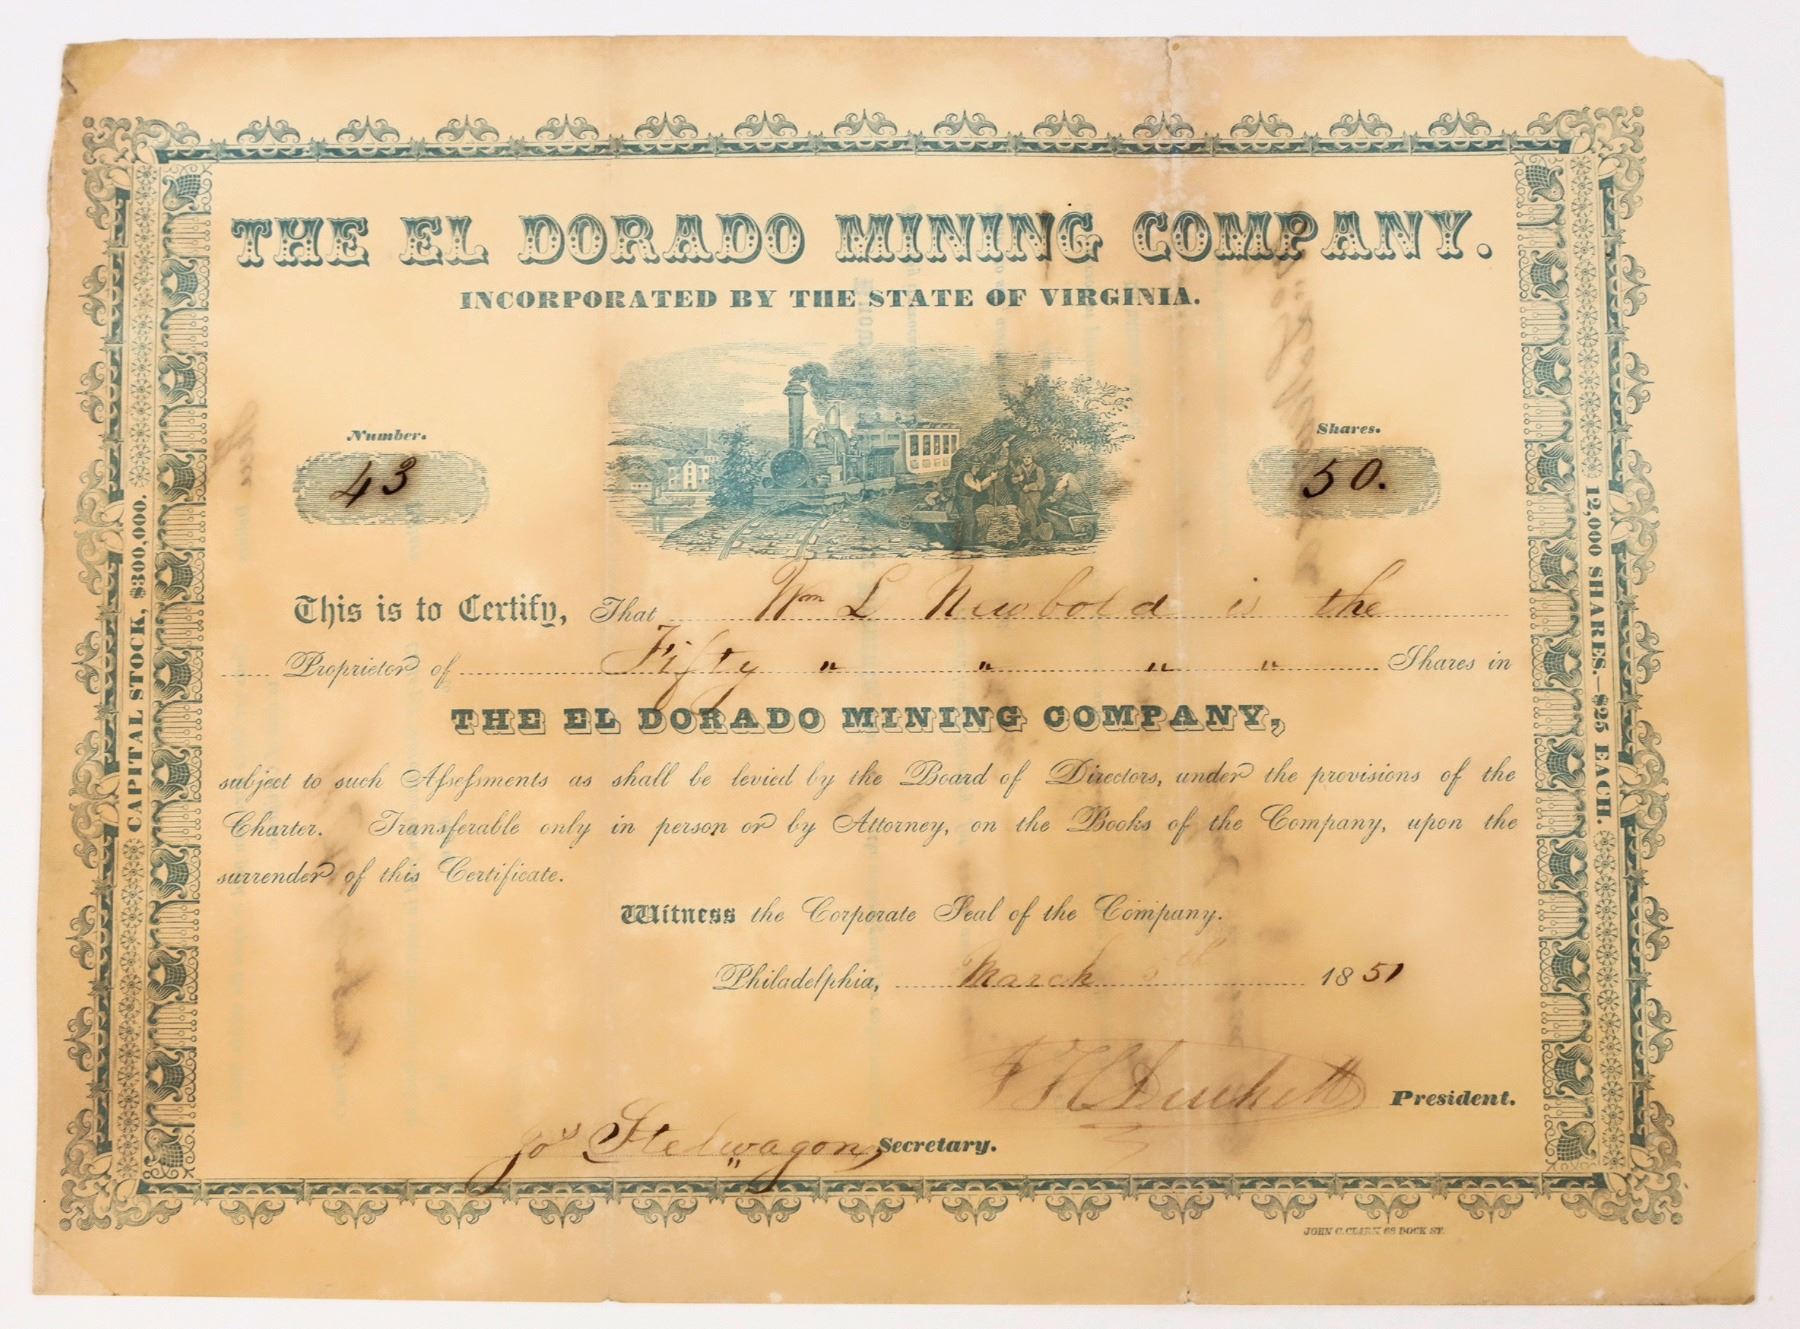 THE EL DORADO MINING COMPANY.
INCORPORATED BY THE STATE OF VIRGINIA.
Number.
43
Shares.
50.
This is to Certify, That Wm L Newbold is the
Proprietor of Fifty " " " " Shares in
THE EL DORADO MINING COMPANY,
subject to such Assessments as shall be levied by the Board of Directors, under the provisions of the
Charter. Transferable only in person or by Attorney, on the Books of the Company, upon the
surrender of this Certificate.
Witness the Corporate Seal of the Company.
Philadelphia, March 5th 1851
President.
Jos Stelwagon, Secretary.
CAPITAL STOCK, $300,000.
12,000 SHARES.—$25 EACH.
JOHN C. CLARK 68 DOCK ST.